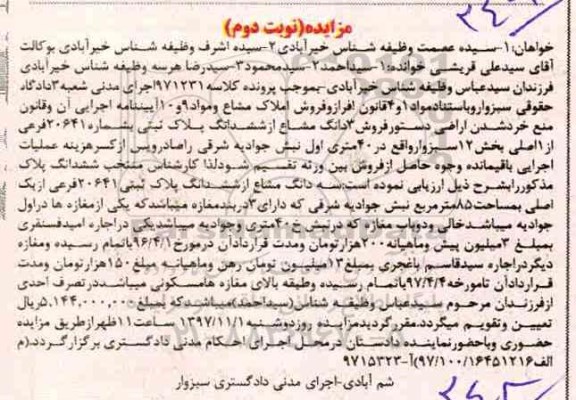 مزایده(نوبت دوم)
خواهان: 1-سیده عصمت وظیفه شناس خیرآبادی 2-سیده اشرف وظیفه شناس خیرآبادی بوکالت
آقای سیدعلی قریشی خوانده: 1-سیداحمد 2-سیدمحمود 3-سیدرضا هرسه وظیفه شناس خیرآبادی
فرزندان سیدعباس وظیفه شناس خیرآبادی-بموجب پرونده کلاسه 971231 اجرای مدنی شعبه 3 دادگاه
حقوقی سبزوار وباستناد مواد 1 و 4 قانون افراز و فروش املاک مشاع ومواد 9 و 10 آیینامه اجرایی آن وقانون
منع خردشدن اراضی دستور فروش 3 دانگ مشاع ازششدانگ پلاک ثبتی بشماره 20641 فرعی
از 1 اصلی بخش 12 سبزوار واقع در 40 متری اول نبش جوادیه شرقی راصادرو پس ازکسرهزینه عملیات
اجرایی باقیمانده وجوه حاصل ازفروش بین ورثه تقسیم شود لذا کارشناس منتخب ششدانگ پلاک
مذکور رابشرح ذیل ارزیابی نموده است:سه دانگ مشاع ازششدانگ پلاک ثبتی 20641 فرعی ازیک
اصلی بمساحت 85 مترمربع نبش جوادیه شرقی که دارای 3 دربند مغازه میباشد که یکی ازمغازه ها دراول
جوادیه میباشدخالی ودوباب مغازه که درنبش 40 متری وجوادیه میباشدیکی دراجاره امیدفسنقری
بمبلغ 3 میلیون پیش وماهیانه 200 هزارتومان ومدت قراردادآن درمورخ 96/4/1 باتمام رسیده ومغازه
دیگردراجاره سیدقاسم باغجری بمبلغ 13 میلیون تومان رهن وماهیانه مبلغ 150 هزارتومان ومدت
قراردادآن تامورخه 97/4/4 باتمام رسیده وطبقه بالای مغازه هامسکونی میباشددرتصرف احدی
ازفرزندان مرحوم سیدعباس وظیفه شناس (سیداحمد)میباشدکه بمبلغ 5,144,000,000 ریال
تعیین وتقویم میگردد.مقررگردیدمزایده روزدوشنبه 1397/11/1 ساعت 11 ظهرازطریق مزایده
حضوری وباحضورنماینده دادستان درمحل اجرای احکام مدنی دادگستری برگزارگردد.(م
الف 97/100/16451216)آ-9715323
شم آبادی-اجرای مدنی دادگستری سبزوار